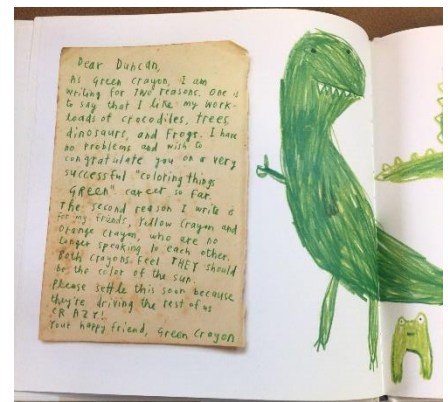 Dear Duncan,
As Green Crayon, I am
writing for TWO reasons. One is
to say that I like my work-
loads of crocodiles, trees,
dinosaurs, and frogs. I have
no problems and wish to
congratulate you on a very
successful "coloring things
GREEN" career so far.
The second reason I write is
for my friends, Yellow Crayon and
Orange Crayon, who are no
longer speaking to each other.
Both crayons feel THEY should
be the color of the sun.
Please settle this soon because
they're driving the rest of us
CRAZY!
Your happy friend, Green Crayon